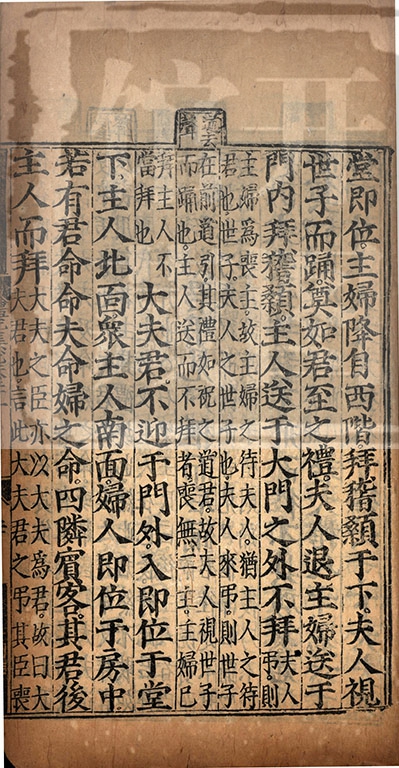 道去聲
堂即位。主婦降自西階。拜稽顙于下。夫人視
世子而踊。奠如君至之禮。夫人退。主婦送于
門內。拜稽顙。主人送于大門之外不拜。夫人弔則
主婦爲喪主。故主婦之待夫人。猶主人之待
君也世子。夫人之世子也。夫人來弔。則世子
在前道引。其禮如祝之道君。故夫人視世子
而踊也。主人送而不拜者。喪無二主。主婦已
拜主人不當拜也 大夫君。不迎于門外。入即位于堂
下。主人北面。衆主人南面。婦人即位于房中。
若有君命。命夫命婦之命。四隣賓客。其君後
主人而拜 大夫之臣亦以大夫爲君。故曰大
夫君也。言此大夫君之弔其臣喪